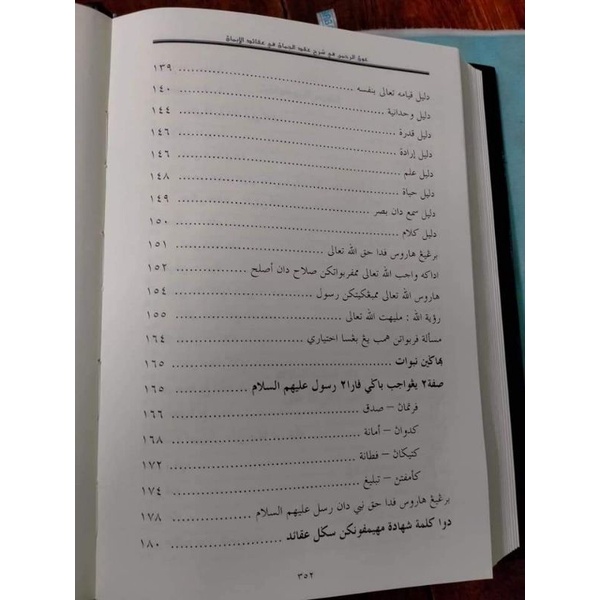 دليل قيامه تعالى بنفسه ............ ١٣٩
دليل وحدانية ............ ١٤٠
دليل قدرة ............ ١٤٤
دليل إرادة ............ ١٤٦
دليل علم ............ ١٤٦
دليل حياة ............ ١٤٨
دليل سمع دان بصر ............ ١٤٩
دليل كلام ............ ١٥٠
برڠيڠ هاروس فدا حق الله تعالى ............ ١٥١
اداكه واجب الله تعالى ممڤربواتكن صلاح دان أصلح ............ ١٥٢
هاروس الله تعالى ممبڠكيتكن رسول ............ ١٥٤
رؤية الله : مليهت الله تعالى ............ ١٥٥
مسألة ڤربواتن همب يڠ بڠسا اختياري ............ ١٦٤
بهاڬين نبوات ............ ١٦٥
صفة٢ يڠ واجب باڬي ڤارا٢ رسول عليهم السلام ............ ١٦٥
– صدق ............ ١٦٦
– أمانة ............ ١٦٨
– فطانة ............ ١٧٢
– تبليغ ............ ١٧٤
برڠيڠ هاروس فدا حق نبي دان رسل عليهم السلام ............ ١٧٨
دوا كلمة شهادة مهيمڤونكن سكل عقائد ............ ١٨٠
٣٥٢